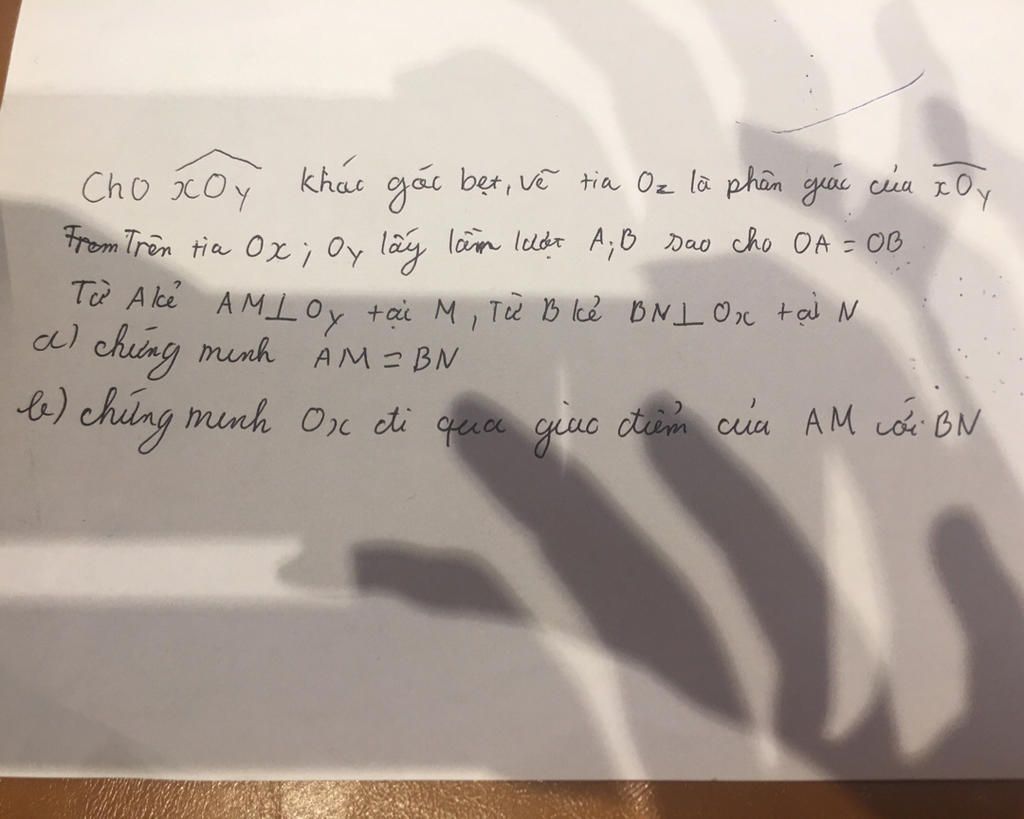 Cho xOy khác góc bẹt, vẽ tia Oz là phân giác của xOy
From Trên tia Ox; Oy lấy lần lượt A;B sao cho OA = OB
Từ A kẻ AM⊥Oy tại M, Từ B kẻ BN⊥Ox tại N
a) chứng minh AM = BN
b) chứng minh Ox đi qua giao điểm của AM với BN